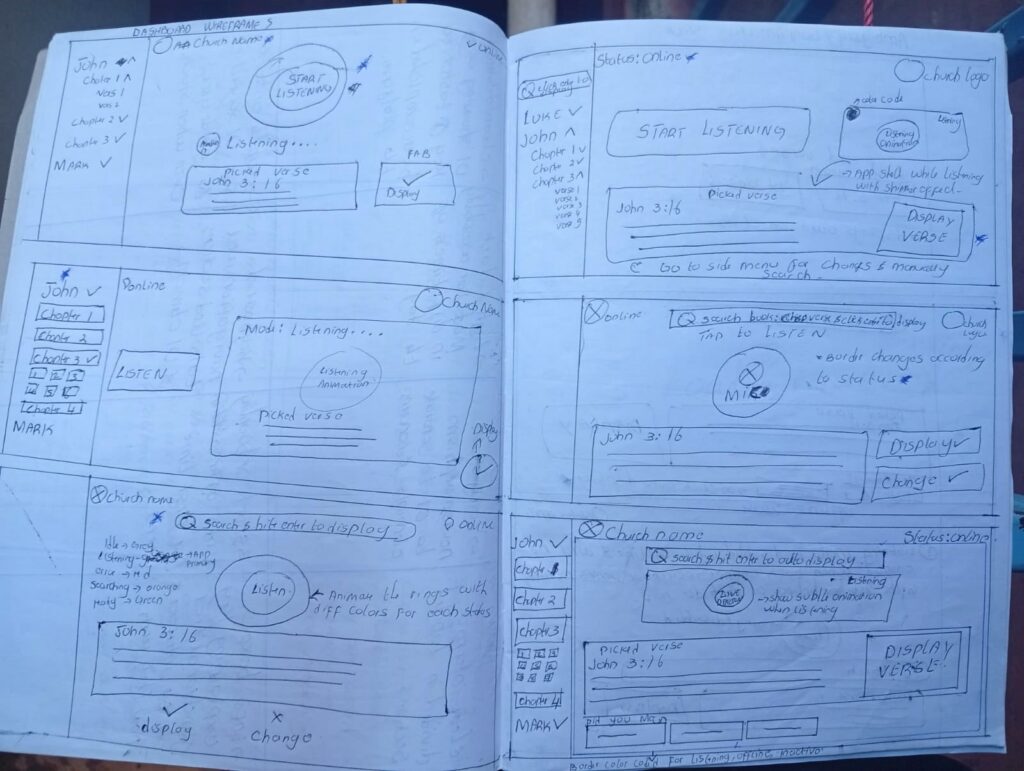 DASHBOARD WIREFRAMES
John ^
Chapter 1 ^
Vers 1
vers 2
Chapter 2 ✓
Chapter 3 ✓
MARK ✓
Church Name
✓ Online
START
LISTENING
Listening....
picked verse
John 3:16
FAB
Display
John ✓
Chapter 1
Chapter 2
Chapter 3 ✓
1 2 3
Chapter 4
MARK
online
Church Name
LISTEN
Mode: Listening....
Listening
Animation
Picked verse
Display
Church name
Q search & hit enter to display
ONLINE
Idle → Grey
Listening → App
primary
error → red
searching → orange
ready → Green
Listen
← Animate the rings with
diff colors for each status
John 3:16
display
x
change
Status: Online
Church Logo
LUKE ✓
John ^
Chapter 1 ✓
Chapter 2 ✓
Chapter 3 ^
verse 1
verse 2
verse 3
verse 4
verse 5
START LISTENING
color code
Listening
Listening
Animation
→ App shell while listening
with shimmer effect
Picked verse
John 3:16
DISPLAY
VERSE
Go to side menu for changes & manually
search
online
Q search book: display
Church
Logo
TAP to LISTEN
Border changes according
to status
John 3:16
Display ✓
Change ✓
John ✓
Chapter 1
Chapter 2
Chapter 3
Chapter 4
MARK ✓
Church name
Status: online
Q search & hit enter to auto display
Listening
→ show subtle animation
when listening
Picked verse
John 3:16
DISPLAY
VERSE
Did you Mean
Border color for listening, offline, inactive